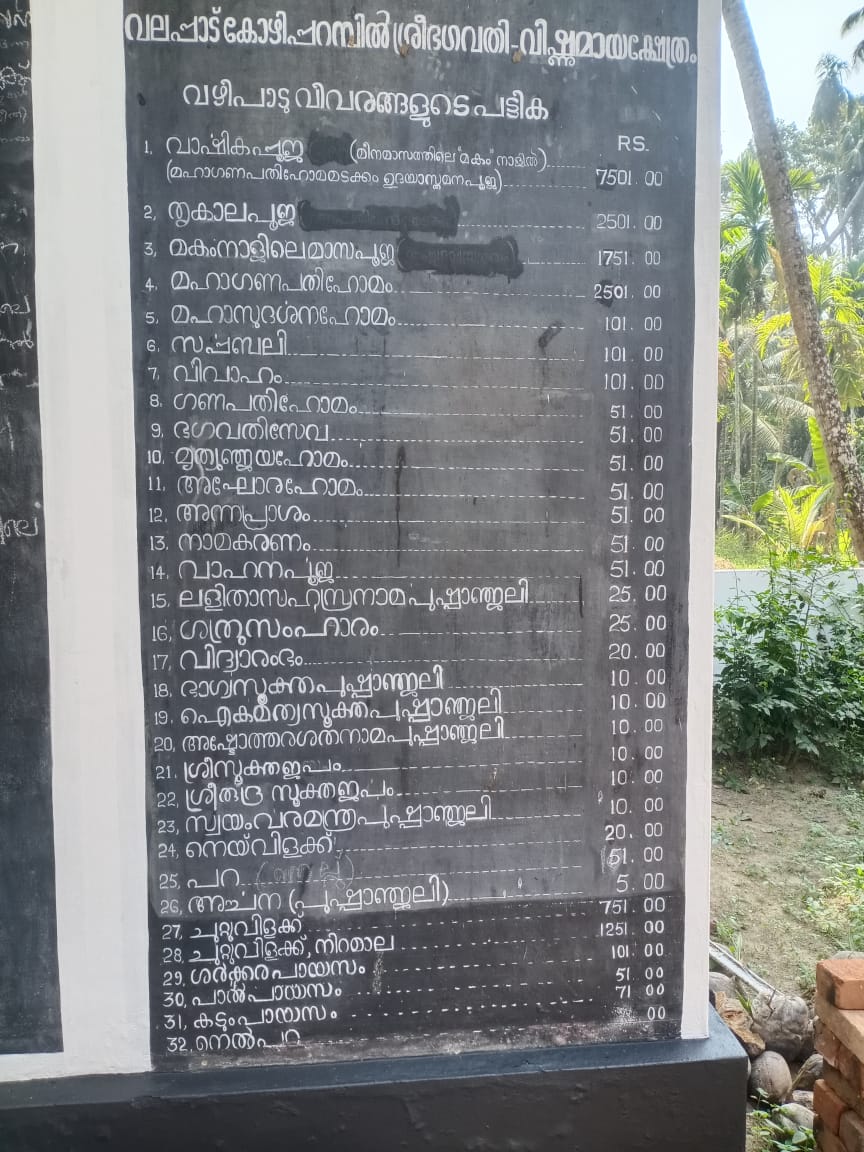 വലപ്പാട് കോഴിപ്പറമ്പിൽ ശ്രീഭഗവതി-വിഷ്ണുമായക്ഷേത്രം
വഴിപാടു വിവരങ്ങളുടെ പട്ടിക
RS.
1. വാർഷികപൂജ (മീനമാസത്തിലെ "മകം" നാളിൽ)
(മഹാഗണപതിഹോമമടക്കം ഉദയാസ്തമനപൂജ) 7501.00
2, തൃകാലപൂജ 2501.00
3, മകംനാളിലെ മാസപൂജ 1751.00
4, മഹാഗണപതിഹോമം 2501.00
5, മഹാസുദർശനഹോമം 101.00
6, സർപ്പബലി 101.00
7, വിവാഹം 101.00
8. ഗണപതിഹോമം 51.00
9. ഭഗവതിസേവ 51.00
10. മൃത്യുഞ്ജയഹോമം 51.00
11. അഘോരഹോമം 51.00
12. അന്നപ്രാശം 51.00
13. നാമകരണം 51.00
14. വാഹനപൂജ 51.00
15. ലളിതാസഹസ്രനാമ പുഷ്പാഞ്ജലി 25.00
16, ശത്രുസംഹാരം 25.00
17, വിദ്യാരംഭം 20.00
18. ഭാഗ്യസൂക്തപുഷ്പാഞ്ജലി 10.00
19. ഐകമത്യസൂക്തപുഷ്പാഞ്ജലി 10.00
20, അഷ്ടോത്തരശതനാമപുഷ്പാഞ്ജലി 10.00
21. ശ്രീസൂക്തജപം 10.00
22. ശ്രീരുദ്ര സൂക്തജപം 10.00
23, സ്വയംവരമന്ത്രപുഷ്പാഞ്ജലി 10.00
24, നെയ് വിളക്ക് 20.00
25, പറ 51.00
26, അർച്ചന (പുഷ്പാഞ്ജലി) 5.00
27, ചുറ്റുവിളക്ക് 751.00
28, ചുറ്റുവിളക്ക്, നിറമാല 1251.00
29. ശർക്കരപായസം 101.00
30. പാൽപായസം 51.00
31, കടുംപായസം 71.00
32. നെൽപറ 00